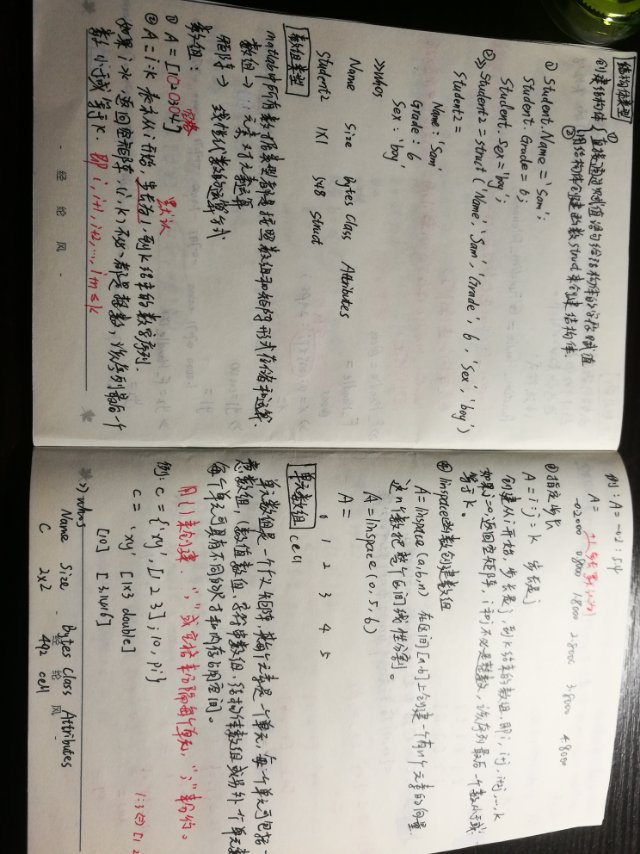 结构体类型
创建结构体 { ① 直接通过赋值语句给结构体的字段赋值
② 用结构体创建函数struct来创建结构体.
① Student.Name = 'Sam';
Student.Grade = 6;
Student.Sex = 'boy';
② >> Student2 = struct('Name','Sam','Grade',6,'Sex','boy')
Student2 =
Name: 'Sam'
Grade: 6
Sex: 'boy'
>>whos
Name Size Bytes Class Attributes
Student2 1X1 548 struct
数组类型
matlab中所有数值类型都是按照数组和矩阵形式存储和运算.
数组 → 元素对元素运算
矩阵 → 线性代数的运算方式
数组:
空格
① A = [1 0 2 0 3 0 4]
默认
② A = i:k 表示从i开始, 步长为1, 到k结束的数字序列.
如果i>k, 返回空矩阵, (i,k) 不必都是整数, 该序列最后一个
数小于或等于k. 即 i, i+1, i+2, ..., i+m ≤ k
经 纶 风
例: A = -0.2 : 5.4
A =
-0.2000 0.8000 1.8000 2.8000 3.8000 4.8000
③ 指定步长
A = i:j:k 步长是j
创建从i开始, 步长是j, 到k结束的数组, 即i, i+j, i+2j, ..., k
等于k.
④ linspace函数创建数组
A = linspace(a,b,n) 在区间[a,b]上创建一个有n个元素的向量
这n个数把整个区间线性分割。
A = linspace(0,5,6)
A =
0 1 2 3 4 5
单元数组 cell
单元数组是一个广义矩阵, 其每个元素是一个单元, 每一个单元可包括一
意数组, (数值数组、字符串数组、结构体数组或另外一个单元数
每个单元可具有不同的尺寸和内存占用空间。
用{}来创建. "," 或空格来分隔每个单元, ";"来分行。
例: C = {'xy', [1 2 3]; 10, pi}
1:3 ⇔ [1 2
C = 'xy' [1x3 double]
[10] [3.1416]
>> whos
Name Size Bytes Class Attributes
C 2x2 492 cell
经 纶 风